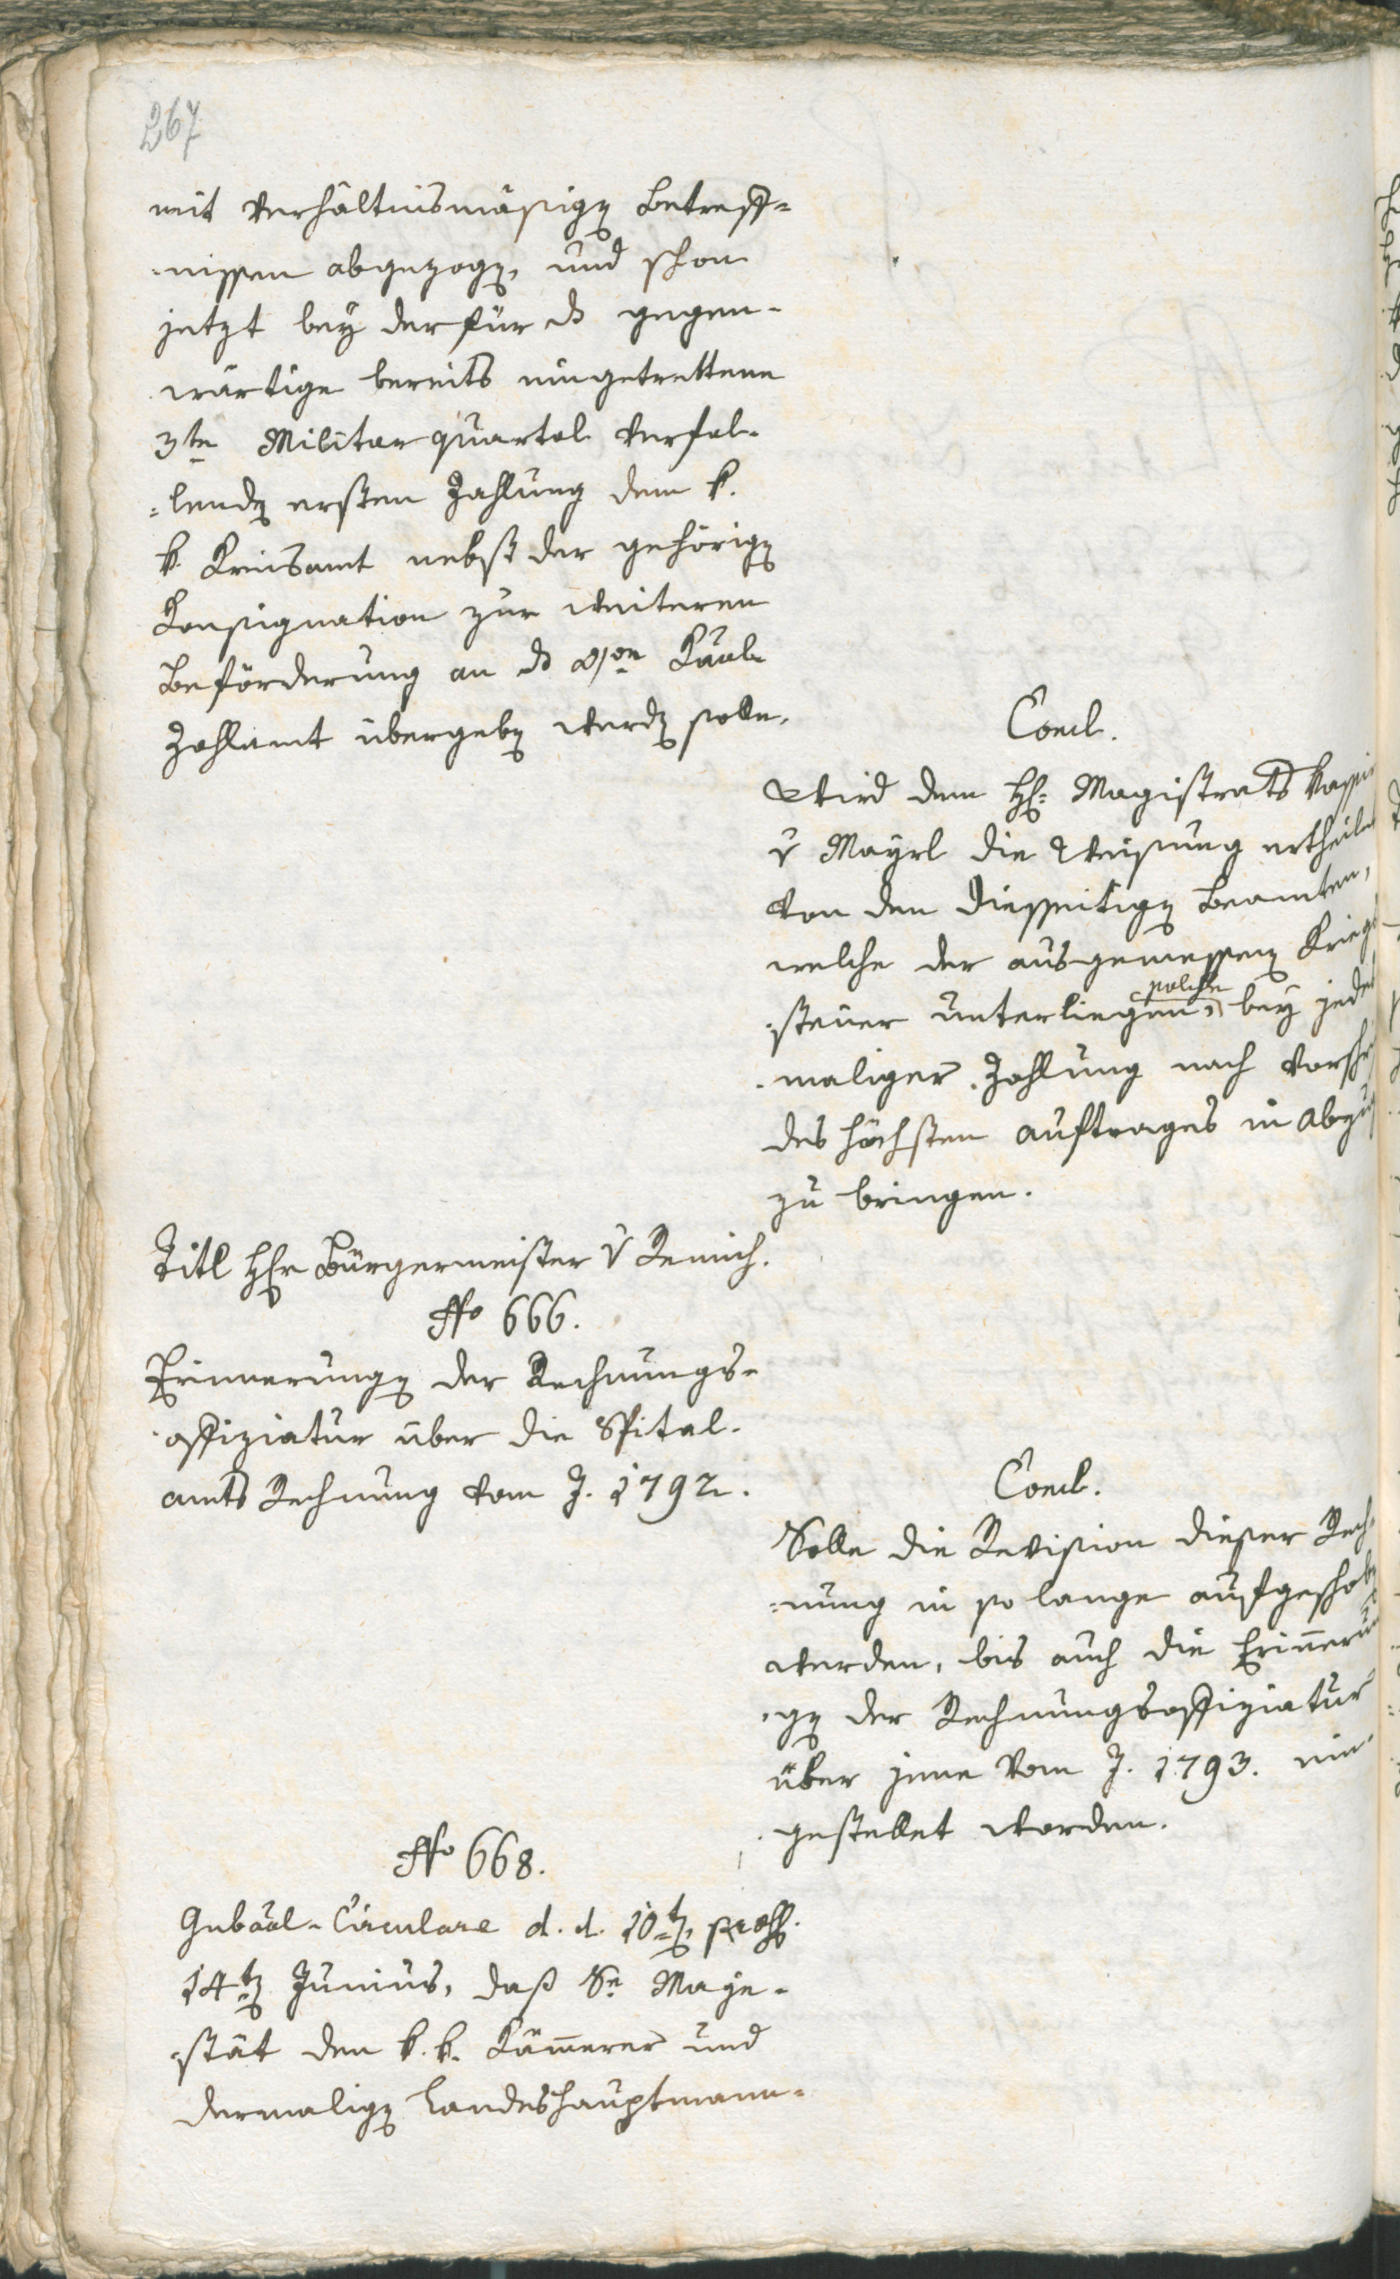 267
mit verhältnismäßigen Betreff-
-nissen abgezogen, und schon
jetzt bey der für das gegen-
wärtige bereits eingetrettene
3te Militar quartal verfal-
-lenden ersten Zahlung dem k.
k. Kreisamt nebst der gehörigen
Consignation zur weiteren
Beförderung an das
Zahlamt übergeben werden solle.
Concl.
Wird dem H: Magistrats Kassier
v Mayrl die Weisung ertheilet
von den diesseitigen Beamten,
welche der ausgemessenen Kriegs
-steuer unterliegen, solche bey jedes
-maliger Zahlung nach Vorschr
des höchsten Auftrages in Abzug
zu bringen.
Titl Hr Bürgermeister v Remich.
No 666.
Erinnerungen der Rechnungs-
-offiziatur über die Spital-
amts Rechnung vom J. 1792.
Concl.
Solle die Revision dieser Rech-
-nung in so lange aufgeschoben
werden, bis auch die Erinnerun
-gen der Rechnungsoffiziatur
über jene vom J. 1793. ein
-gestellet worden.
No 668.
Gubaal-Circulare d. d. 10ten
14ten Junius, daß Se Maje-
-stät den k. k. Kämmerer und
dermaligen Landeshauptmann-